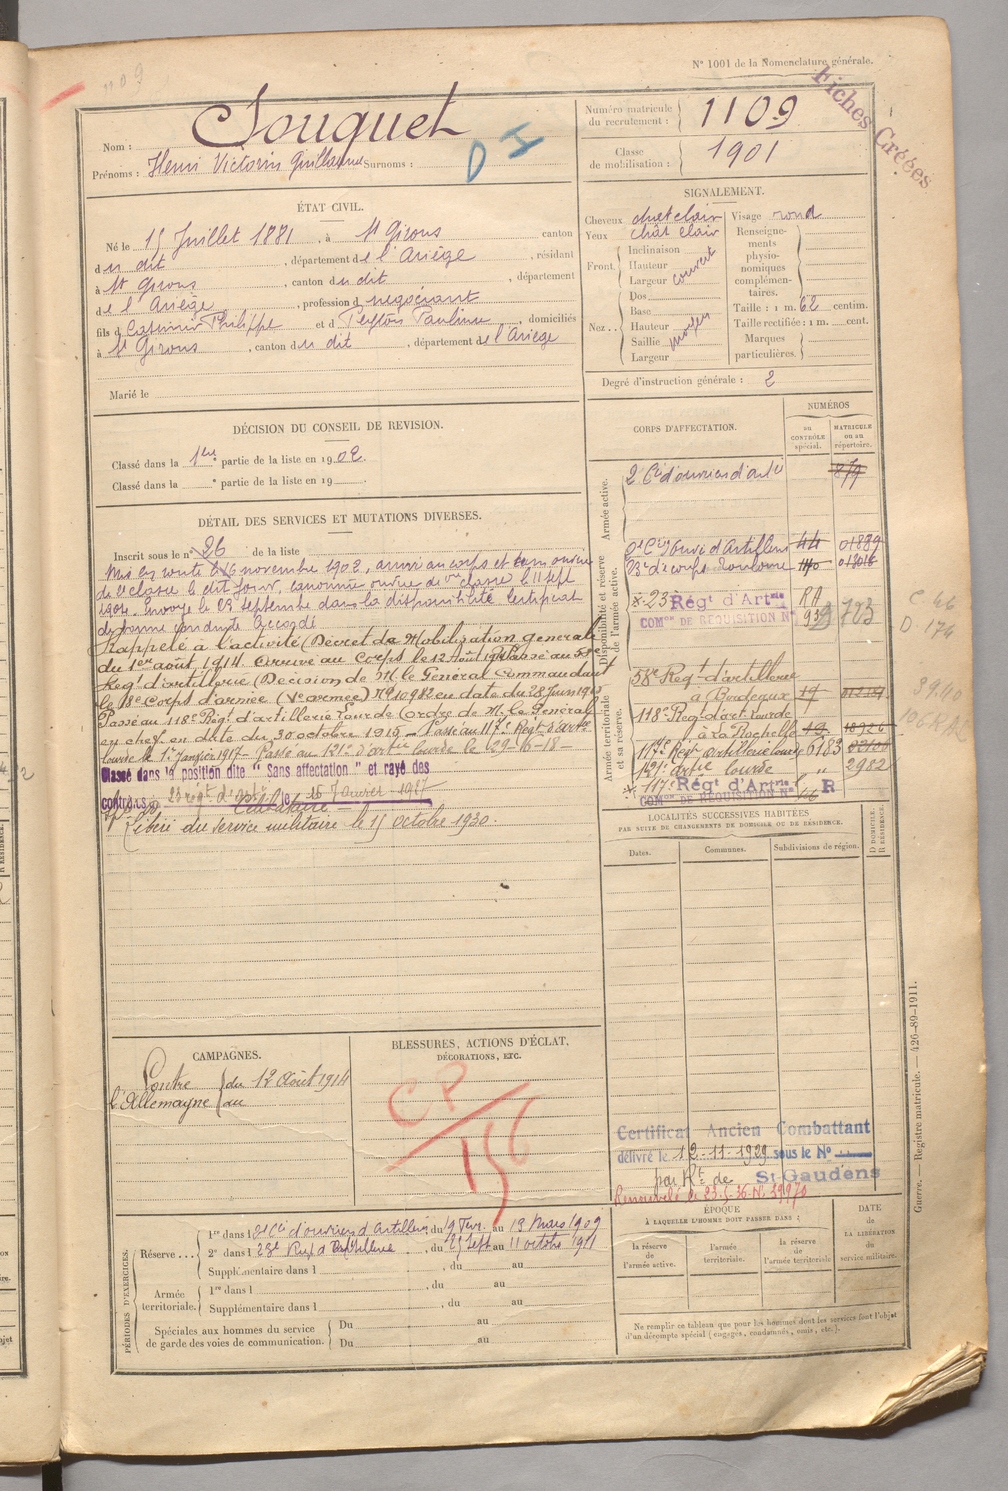 N° 1001 de la Nomenclature générale.
Fiches Créées
Nom : Souquet
Prénoms : Henri Victorin Guillaume Surnoms :
D H
Numéro matricule du recrutement : 1109
Classe de mobilisation : 1901
ÉTAT CIVIL.
Né le 15 Juillet 1881, à St Girons canton
du dit, département de l'Ariège, résidant
à St Girons, canton du dit, département
de l'Ariège, profession d négociant
fils d Casimir Philippe et d Peyton Pauline, domiciliés
à St Girons, canton du dit, département de l'Ariège
Marié le
SIGNALEMENT.
Cheveux chat clair
Yeux chat clair
Front. Inclinaison
Hauteur
Largeur
couvert
Nez.. Dos
Base
Hauteur
Saillie
Largeur
moyen
Visage rond
Renseignements physionomiques complémentaires.
Taille : 1 m. 62 centim.
Taille rectifiée : 1 m. cent.
Marques particulières.
Degré d'instruction générale : 2
DÉCISION DU CONSEIL DE REVISION.
Classé dans la 1ere partie de la liste en 1902.
Classé dans la e partie de la liste en 19
DÉTAIL DES SERVICES ET MUTATIONS DIVERSES.
Inscrit sous le n° 26 de la liste
Mis en route le 16 novembre 1902, arrivé au corps et ouvrier
de 2e classe le dit jour, ouvrier de 1ere classe le 11 Sept
1904. Envoyé le 23 Septembre dans la disponibilité. Certificat
de bonne conduite accordé
Rappelé à l'activité (Décret de Mobilisation générale
du 1er août 1914. Arrivé au Corps le 12 Août 1914 Passé au 58e
Régt d'artillerie (Décision de M. le Général Commandant
le 18e Corps d'armée (Ve armée) N° 10982 en date du 28 Juin 1915
Passé au 118e Régt d'artillerie Lourde (ordre de M. le Général
en chef en date du 30 octobre 1915 - Passé au 117e Régt d'artie
lourde le 1er Janvier 1917 - Passé au 121e d'artie lourde le 29-6-18 -
Classé dans la position dite "Sans affectation" et rayé des
contrôles du 23 régt d'artie le 15 Janvier 1927
Libéré du service militaire le 15 octobre 1930.
CORPS D'AFFECTATION.
NUMÉROS
au CONTRÔLE spécial.
MATRICULE ou au répertoire.
Armée active.
2e Cie d'ouvriers d'artie
Disponibilité et réserve de l'armée active.
2e Cie d'Ouvr d'Artillerie 44 01889
23e de corps Toulouse 140 013016
23 Régt d'Artrie RA
COMon DE REQUISITION N° 939 723
Armée territoriale et sa réserve.
58e Régt d'artillerie
à Bordeaux 17
118e Régt d'art Lourde
à La Rochelle 19
117e Régt artillerie lourde 6183
121e artie lourde " 2982
117e Régt d'Artrie R
COMon DE REQUISITION N°
C. 46
D. 174
LOCALITÉS SUCCESSIVES HABITÉES
PAR SUITE DE CHANGEMENTS DE DOMICILE OU DE RÉSIDENCE.
Dates.
Communes.
Subdivisions de région.
D DOMICILE.
R RÉSIDENCE.
CAMPAGNES.
Contre l'Allemagne
du 12 Août 1914
au
BLESSURES, ACTIONS D'ÉCLAT,
DÉCORATIONS, ETC.
CP
156
Certificat Ancien Combattant
délivré le 12-11-1929 sous le N°
par Rt de St Gaudens
Renouvelé le 23.5.36 N° 39970
PÉRIODES D'EXERCICES.
Réserve... 1re dans l 2e Cie d'ouvriers d'Artillerie du 19 Févr. au 13 Mars 1909
2e dans l 23e Régt d'Artillerie, du 25 Sept au 11 octobre 1911
Supplémentaire dans l , du au
Armée territoriale. 1re dans l , du au
Supplémentaire dans l , du au
Spéciales aux hommes du service de garde des voies de communication. Du au
Du au
ÉPOQUE
À LAQUELLE L'HOMME DOIT PASSER DANS :
la réserve de l'armée active.
l'armée territoriale.
la réserve de l'armée territoriale
DATE DE LA LIBÉRATION du service militaire.
Ne remplir ce tableau que pour les hommes dont les services font l'objet
d'un décompte spécial (engagés, condamnés, omis, etc.).
Guerre. — Registre matricule. — 426-89-1911.